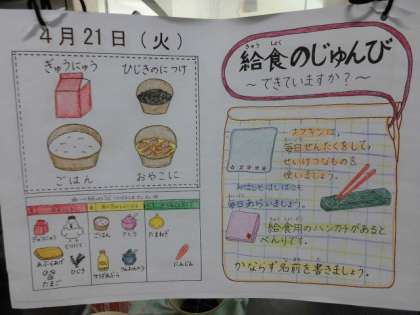 4月21日（火）
ぎゅうにゅう
ひじきのにつけ
ごはん
おやこに
ぎゅうにゅう
とりにく
あぶらあげ
ひじき
たまご
ごはん
さとう
たまねぎ
にんじん
きゅう しょく
給食のじゅんび
～できていますか？～
ナフキンは、
毎日せんたくをして、
せいけつなものを
使いましょう。
おはしとはしばこも
毎日あらいましょう。
給食用のハンカチがあると
べんりです。
かならず名前を書きましょう。